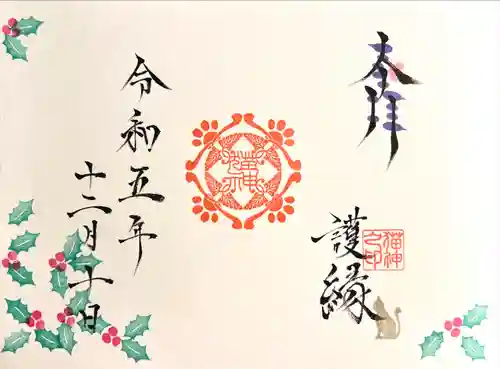 奉拝
護縁
猫神
令和五年
十二月十日